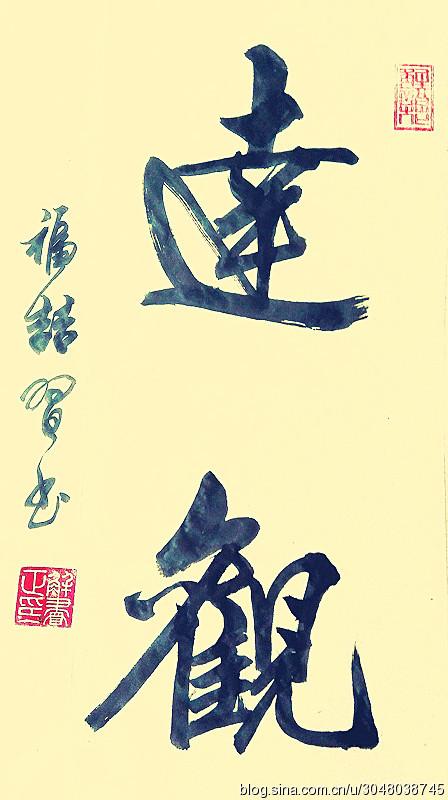 達觀
福喆習书
blog.sina.com.cn/u/3048038745